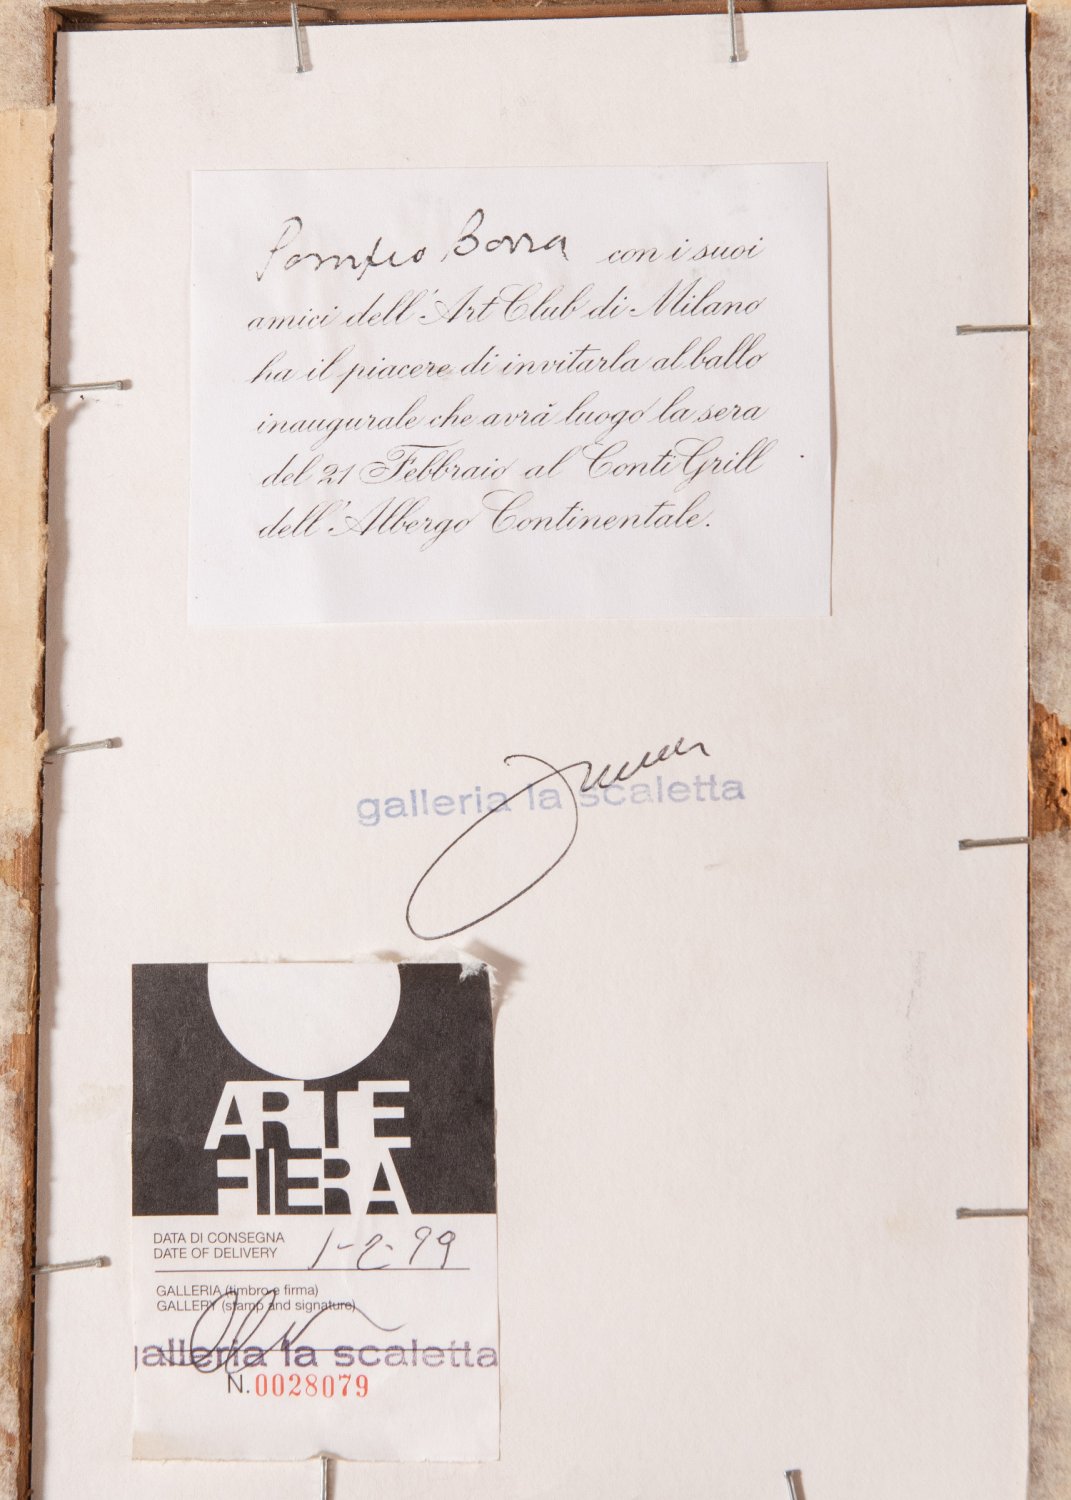 Pompeo Borra con i suoi
amici dell'Art Club di Milano
ha il piacere di invitarla al ballo
inaugurale che avrà luogo la sera
del 21 Febbraio al Conti Grill
dell'Albergo Continentale.
galleria la scaletta
ARTE
FIERA
DATA DI CONSEGNA
DATE OF DELIVERY 1-2-99
GALLERIA (timbro e firma)
GALLERY (stamp and signature)
galleria la scaletta
N. 0028079